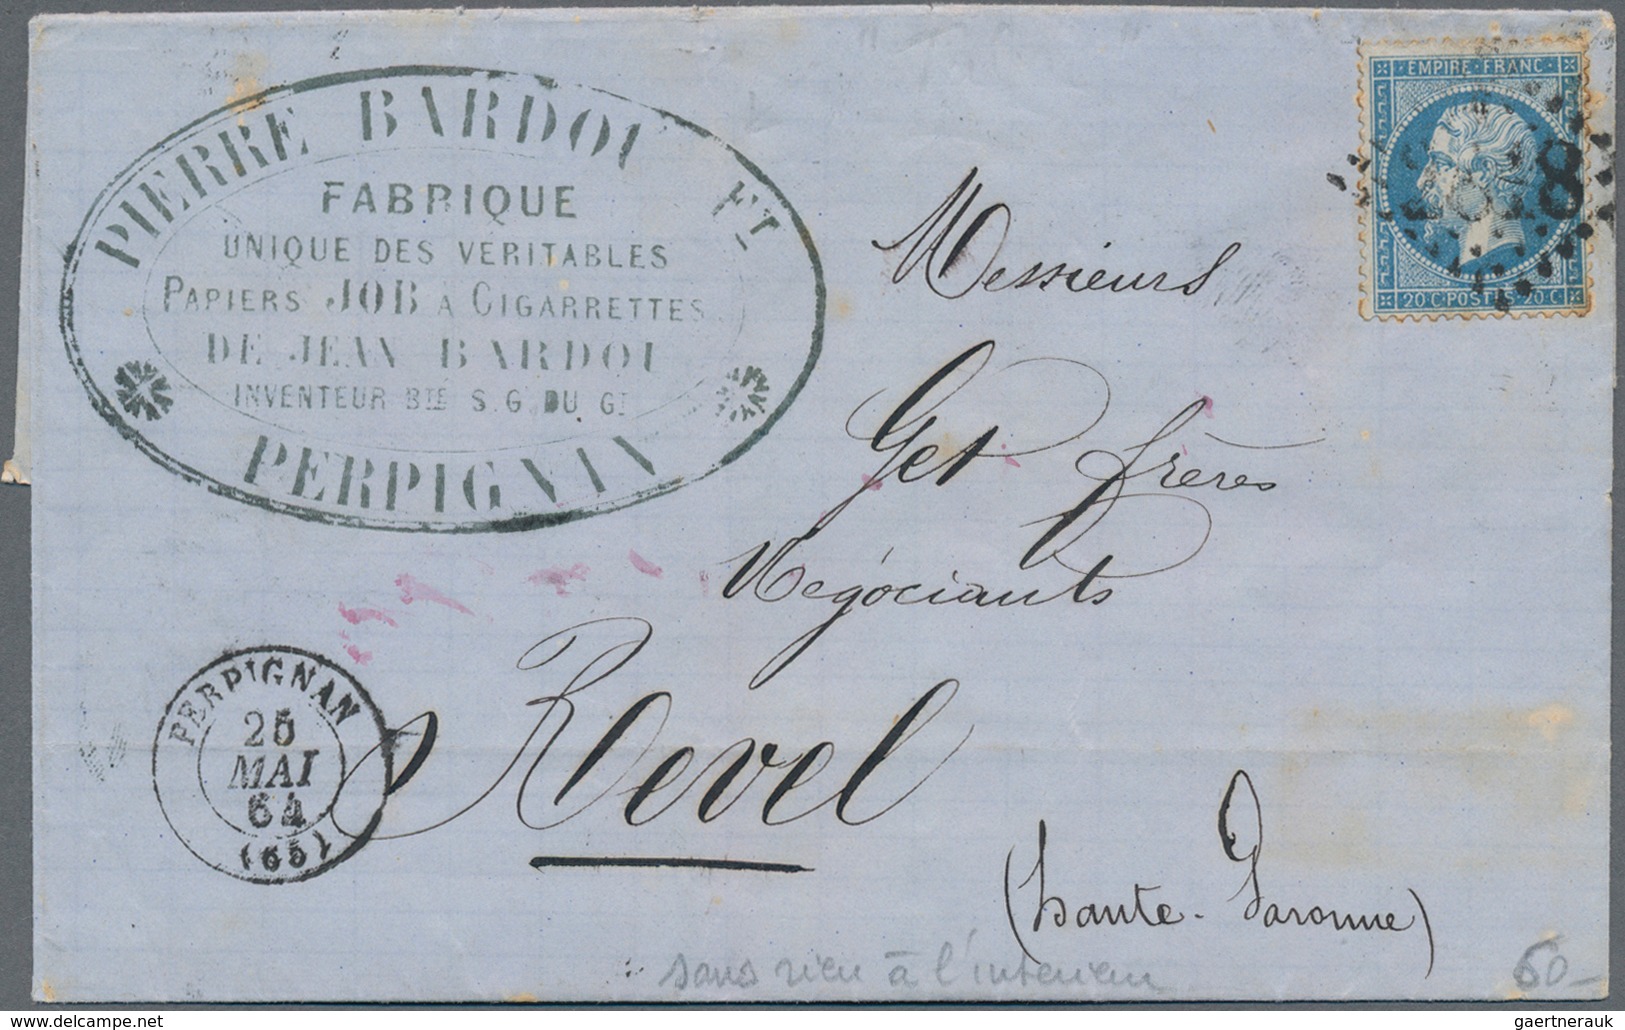 PIERRE BARDOU ET
FABRIQUE
UNIQUE DES VERITABLES
PAPIERS JOB A CIGARRETTES
DE JEAN BARDOU
INVENTEUR BTÉ S.G.DU GT
PERPIGNAN
EMPIRE FRANC
20 C POSTES 20 C
Messieurs
Get frères
Négociants
Revel
(haute-Garonne)
PERPIGNAN
25
MAI
64
(65)
sans rien à l'interieur
60-
gaertnerauk / delcampe.net